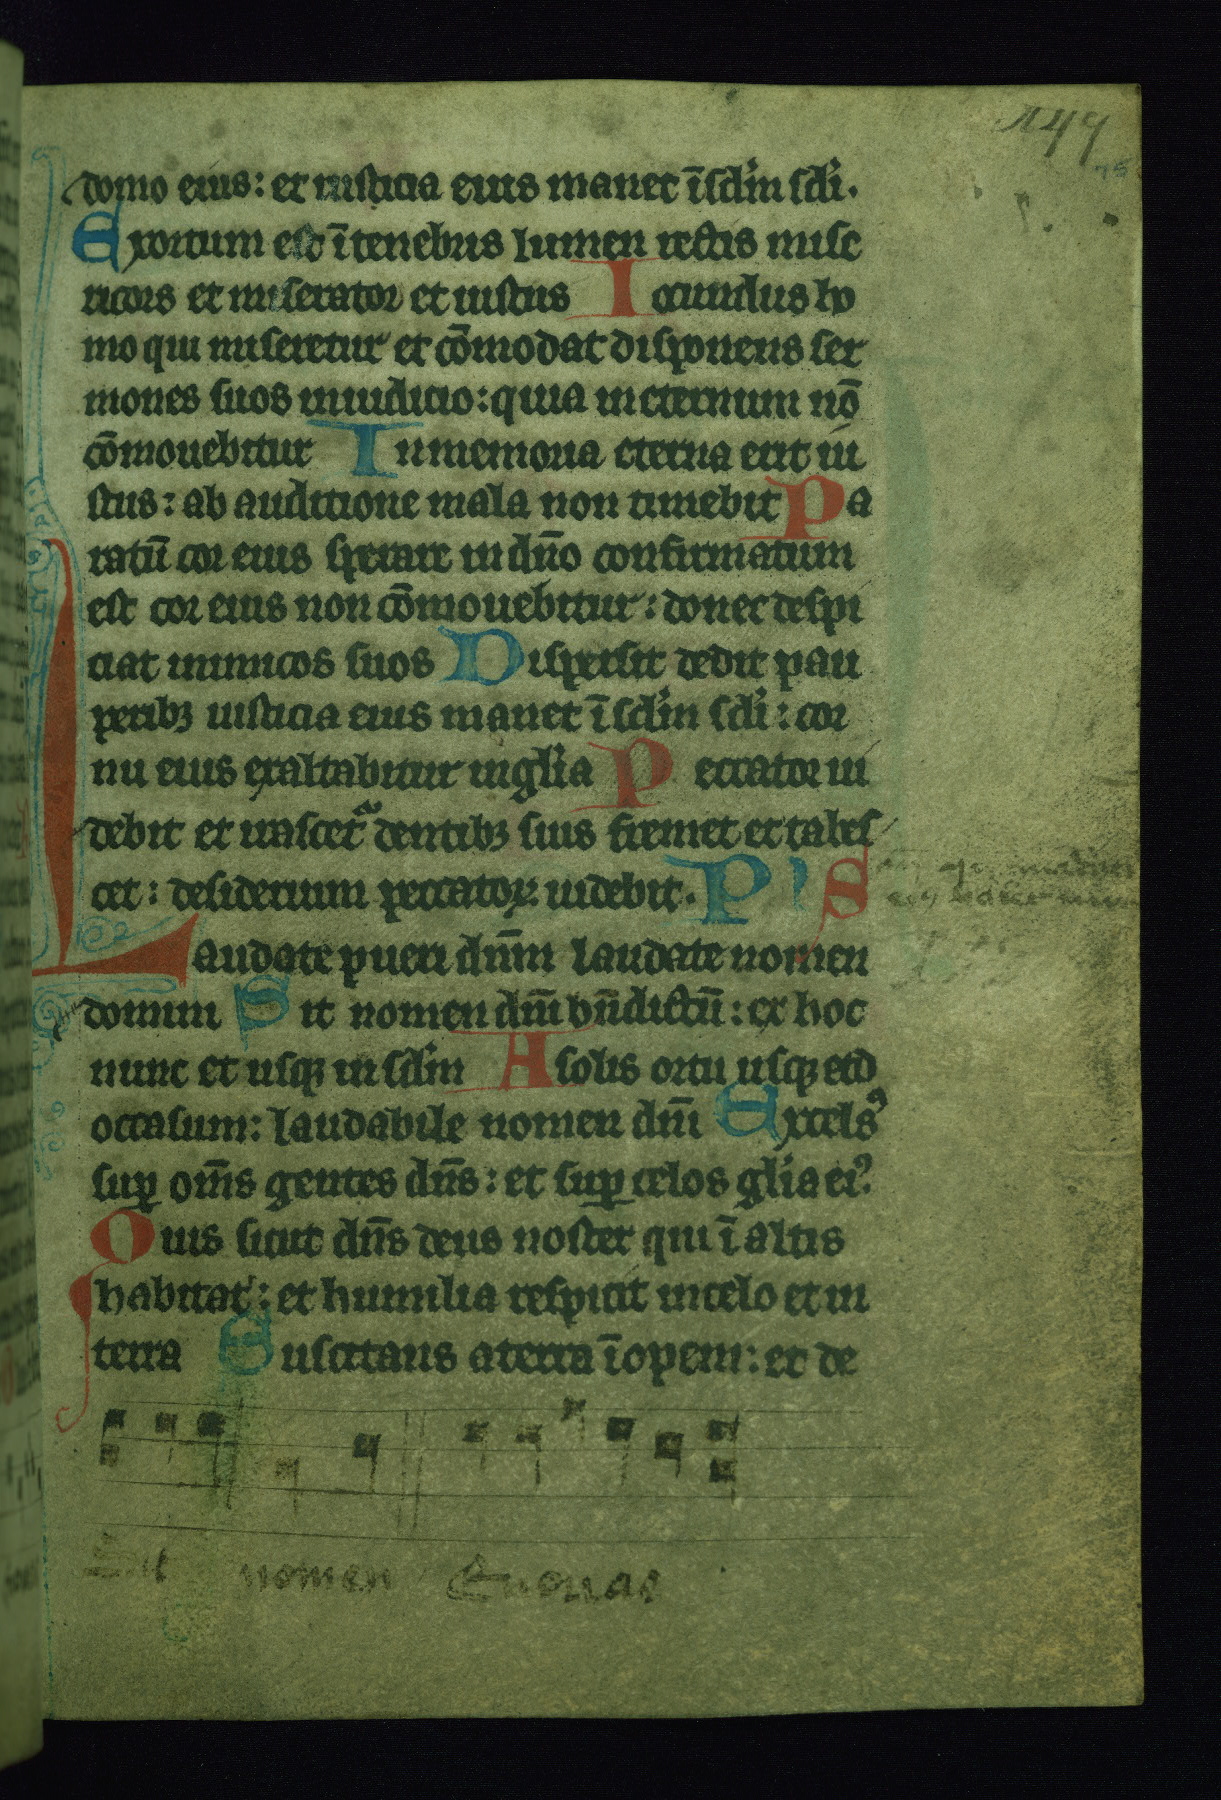 149
75
domo eius: et iusticia eius manet ĩ sclm scli.
Exortum est ĩ tenebris lumen rectis mise
ricors et miserator et iustus Iocundus ho
mo qui miseretur et cõmodat disponens ser
mones suos in iudicio: quia in eternum nõ
cõmouebitur In memoria eterna erit iu
stus: ab auditione mala non timebit Pa
ratũ cor eius sperare in dño confirmatum
est cor eius non cõmouebitur: donec despi
ciat inimicos suos Dispersit dedit pau
peribꝫ iusticia eius manet ĩ sclm scli: cor
nu eius exaltabitur in glia Peccator ui
debit et irascet᷑ dentibꝫ suis fremet et tabes
cet: desiderium peccatoꝝ uidebit. Pˢ S
Laudate pueri dñm laudate nomen
domini Sit nomen dñi bñdictũ: ex hoc
nunc et usqꝫ in sclm A solis ortu usqꝫ ad
occasum: laudabile nomen dñi Excelsꝰ
suꝑ om̃s gentes dñs: et suꝑ celos glia eiꝰ
Quis sicut dñs deus noster qui ĩ altis
habitat: et humilia respicit in celo et in
terra Suscitans a terra ĩopem: et de
Sit nomen Euouae